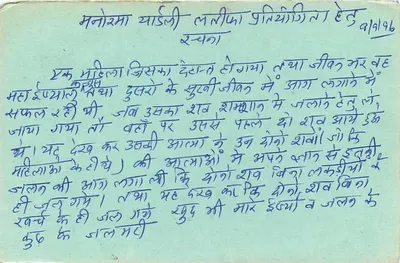 मनोरमा यार्डली लतीफा प्रतियोगिता हेतु
रचना
9/1/96
एक महिला जिसका देहान्त हो गया तथा जीवन भर वह
महा ईर्ष्यालु कन्जूस तथा दुसरो के सुखी जीवन में आग लगाने में
सफल रही थी जब उसका शव शमशान में जलाने हेतु ले
जाया गया तो वहाँ पर उससे पहले दो शव आये हुऐ
थे। यह देख कर उसकी आत्मा ने उन दोनो शवो। जो कि
महिलाओ के ही थे) की आत्माओं में अपने ज्ञान से इतनी
जलन की आग लगा दी कि दोनो शव बिना लकड़ीयो के
ही जल गये। तथा यह देख कर कि दोनो शव बिना
खर्च के ही जल गये खुद भी मारे ईर्ष्या व जलन के
कुढ के जल मरी